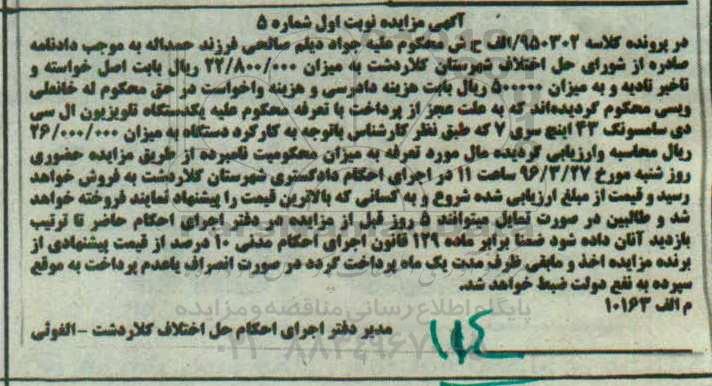 آگهی مزایده نوبت اول شماره ۵
در پرونده کلاسه ۹۵۰۳۰۲/الف ح ش محکوم علیه جواد دیلم صالحی فرزند حمداله به موجب دادنامه
صادره از شورای حل اختلاف شهرستان کلاردشت به میزان ۲۲/۸۰۰/۰۰۰ ریال بابت اصل خواسته و
تاخیر تادیه و به میزان ۵۰۰۰۰۰ ریال بابت هزینه دادرسی و هزینه واخواست در حق محکوم له خانعلی
ویسی محکوم گردیده‌اند که به علت عجز از پرداخت با تعرفه محکوم علیه یکدستگاه تلویزیون ال سی
دی سامسونگ ۴۳ اینچ سری ۷ که طبق نظر کارشناس باتوجه به کارکرد دستگاه به میزان ۲۶/۰۰۰/۰۰۰
ریال محاسبه وارزیابی گردیده مال مورد تعرفه به میزان محکومیت نامبرده از طریق مزایده حضوری
روز شنبه مورخ ۹۶/۳/۲۷ ساعت ۱۱ در اجرای احکام دادگستری شهرستان کلاردشت به فروش خواهد
رسید و قیمت از مبلغ ارزیابی شده شروع و به کسانی که بالاترین قیمت را پیشنهاد نمایند فروخته خواهد
شد و طالبین در صورت تمایل میتوانند ۵ روز قبل از مزایده در دفتر اجرای احکام حاضر تا ترتیب
بازدید آنان داده شود ضمنا برابر ماده ۱۲۹ قانون اجرای احکام مدنی ۱۰ درصد از قیمت پیشنهادی از
برنده مزایده اخذ و مابقی ظرف مدت یک ماه پرداخت گردد در صورت انصراف یاعدم پرداخت به موقع
سپرده به نفع دولت ضبط خواهد شد.
م الف ۱۰۱۶۳
پایگاه اطلاع رسانی مناقصه و مزایده
مدیر دفتر اجرای احکام حل اختلاف کلاردشت - الفوئی